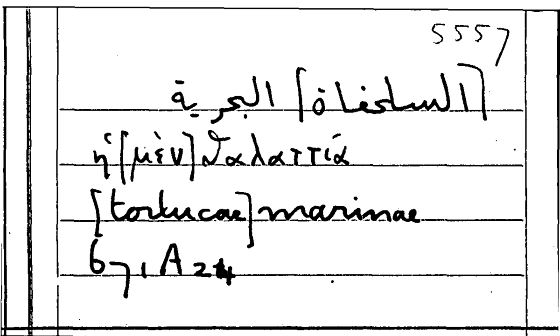 5557
[السلحفاة] البحرية
ἡ [μὲν] θαλαττία
[tortucae] marinae
671A24